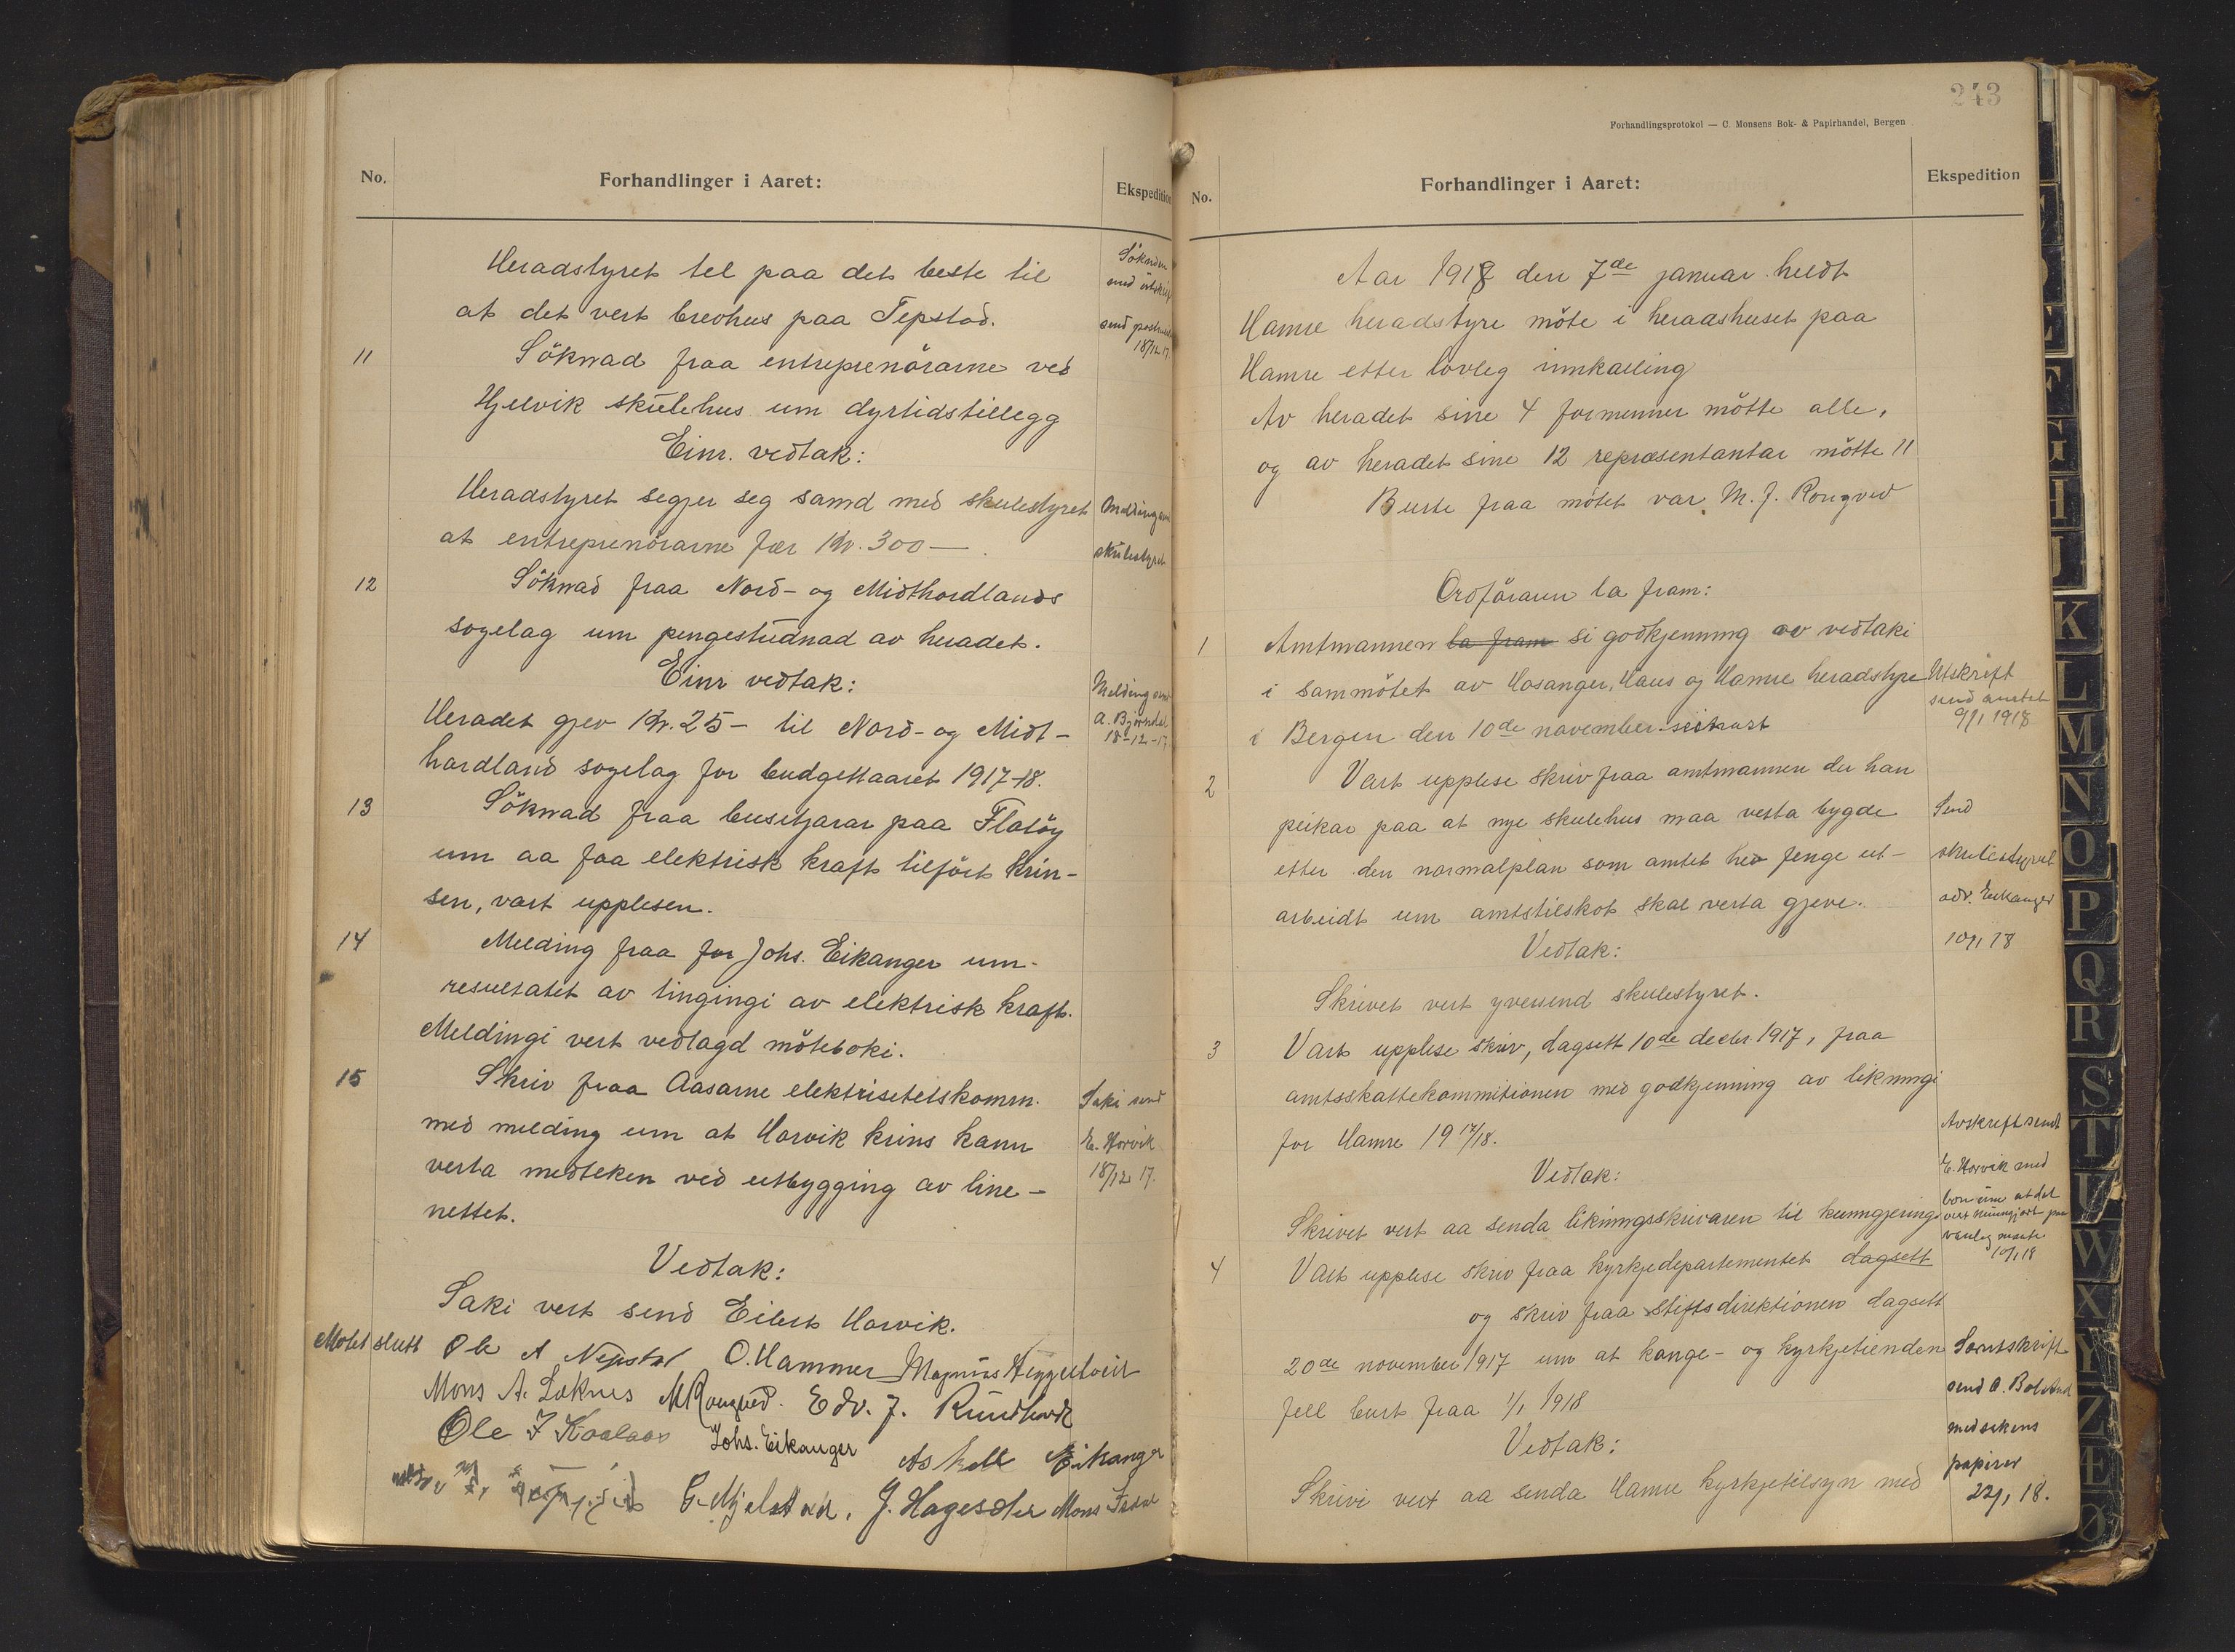 No.
Forhandlinger i Aaret:
Ekspedition
Heradstyret tel paa det beste til
at det vert brevhus paa Tepstad.
Söknaden
send
18/12 17
11
Söknad fraa entreprenörarne ved
Hjelvik skulehus um dyrtidstillegg
Einr. vedtak:
Heradstyret segjer seg samd med skulestyret
at entreprenörarne fær Kr. 300 — .
Melding
skulestyret
12
Söknad fraa Nord- og Midthordlands
sogelag um pengestudnad av heradet.
Einr vedtak:
Heradet gjev Kr. 25 - til Nord- og Midt-
hordland sogelag for budgettaaret 1917-18.
Melding send
A. Björndal
18-12-17
13
Söknad fraa busitjarar paa Flatöy
um aa faa elektrisk kraft tilfört krin-
sen, vart upplesen.
14
Melding fraa for Johs. Eikanger um-
resultatet av tingingi av elektrisk kraft.
Meldingi vert vedlagd möteboki.
15
Skriv fraa Aasarne elektrisetetskomm.
med melding um at Horvik krins kann
verta medteken ved utbygging av line-
nettet.
Saki send
E. Horvik
18/12 17.
Vedtak:
Saki vert send Eilert Horvik.
Mötet slutt
Ole A Nepstad O. Hammer Magnus Heggertveit
Mons A. Loknes M Rongved. Edv. J. Rundhovde
Ole J Kaalaas Johs. Eikanger Askell Eikanger
G. Mjelstad. J. Hagesæter Mons
243
Forhandlingsprotokol — C. Monsens Bok- & Papirhandel, Bergen
No.
Forhandlinger i Aaret:
Ekspedition
Aar 1918 den 7de januar heldt
Hamre heradstyre möte i heradshuset paa
Hamre etter lovleg innkalling
Av heradet sine 4 formenner mötte alle,
og av heradet sine 12 repræsentantar mötte 11
Burte fraa mötet var M. J. Rongved
Ordföraren la fram:
1
Amtmannen la fram si godkjenning av vedtaki
i sammötet av Hosanger, Haus og Hamre heradstyre
i Bergen den 10de november sistnast
Utskrift
send amtet
9/1 1918
2
Vart upplese skriv fraa amtmannen der han
peikar paa at nye skulehus maa verta bygde
etter den normalplan som amtet hev fenge ut-
arbeidt um amtstilskot skal verta gjeve.
Send
skulestyret
adr. Eikanger
10/1 18
Vedtak:
Skrivet vert yversend skulestyret.
3
Vart upplese skriv, dagsett 10de decbr. 1917, fraa
amtsskattekommitionen med godkjenning av likningi
for Hamre 19 17/18.
Vedtak:
Skrivet vert aa senda likningsskrivaren til kunngjering
Avskrift sendt
E. Horvik med
bön um at det
vert kunngjort paa
vanleg maate
10/1 18
4
Vart upplese skriv fraa kyrkjedepartementet dagsett
og skriv fraa stiftsdirektionen dagsett
20de november 1917 um at konge- og kyrkjetienden
fell burt fraa 1/1 1918
Vedtak:
Skrivi vert aa senda Hamre kyrkjetilsyn med
Særutskrift
send O. Bolstad
med sakens
papirer
22/1 18.
E
F
G
H
J
K
L
M
N
O
P
Q
R
S
T
U
W
X
Y
Z
Æ
Ø